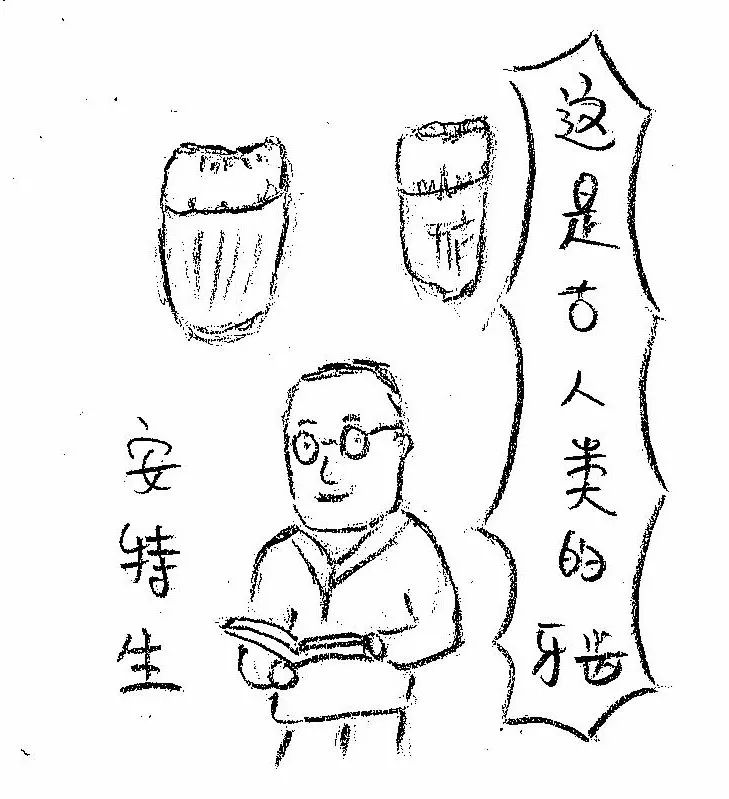 这是古人类的牙齿
安特生